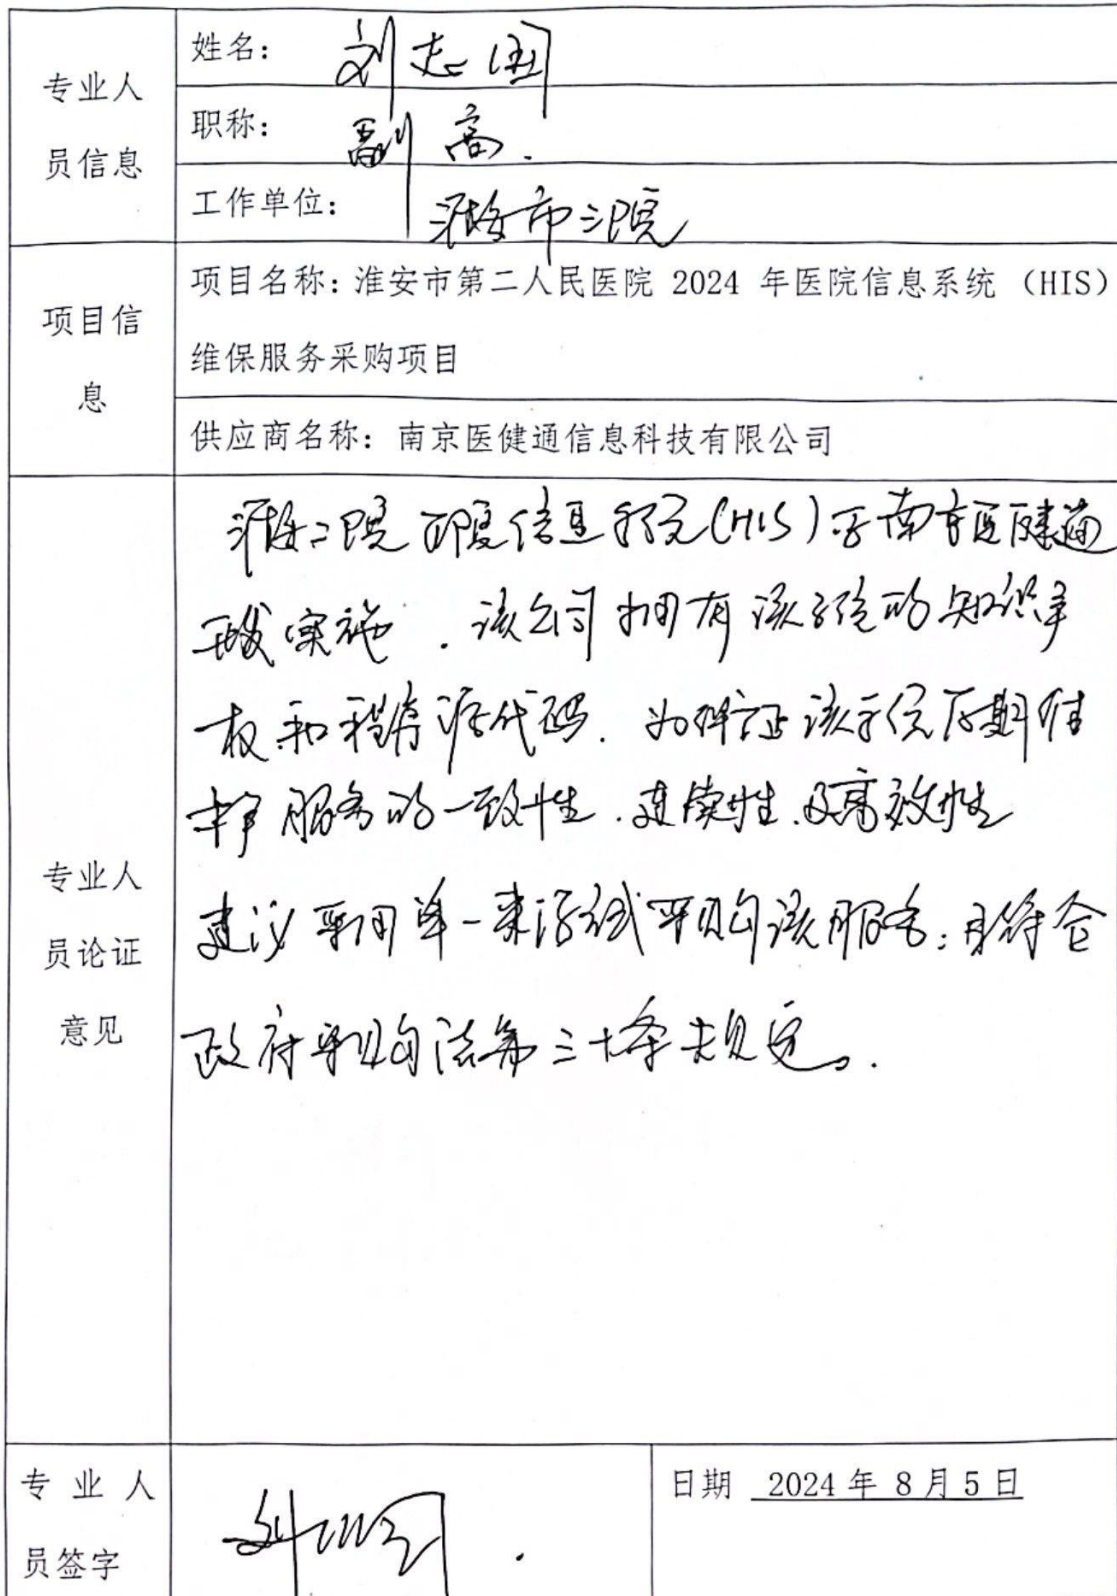 专业人员信息
姓名：刘志国
职称：副高.
工作单位：淮安市三院
项目信息
项目名称：淮安市第二人民医院 2024 年医院信息系统 （HIS）
维保服务采购项目
供应商名称：南京医健通信息科技有限公司
专业人员论证意见
淮安二院医院信息系统(HIS)为南京医健通
开发实施．该公司拥有该系统的知识产
权和程序源代码．为保证该系统后期维
护服务的一致性．连续性．及高效性
建议采用单一来源方式采购该服务；
符合
政府采购法第三十一条规定。
专业人员签字
日期 2024 年 8 月 5 日